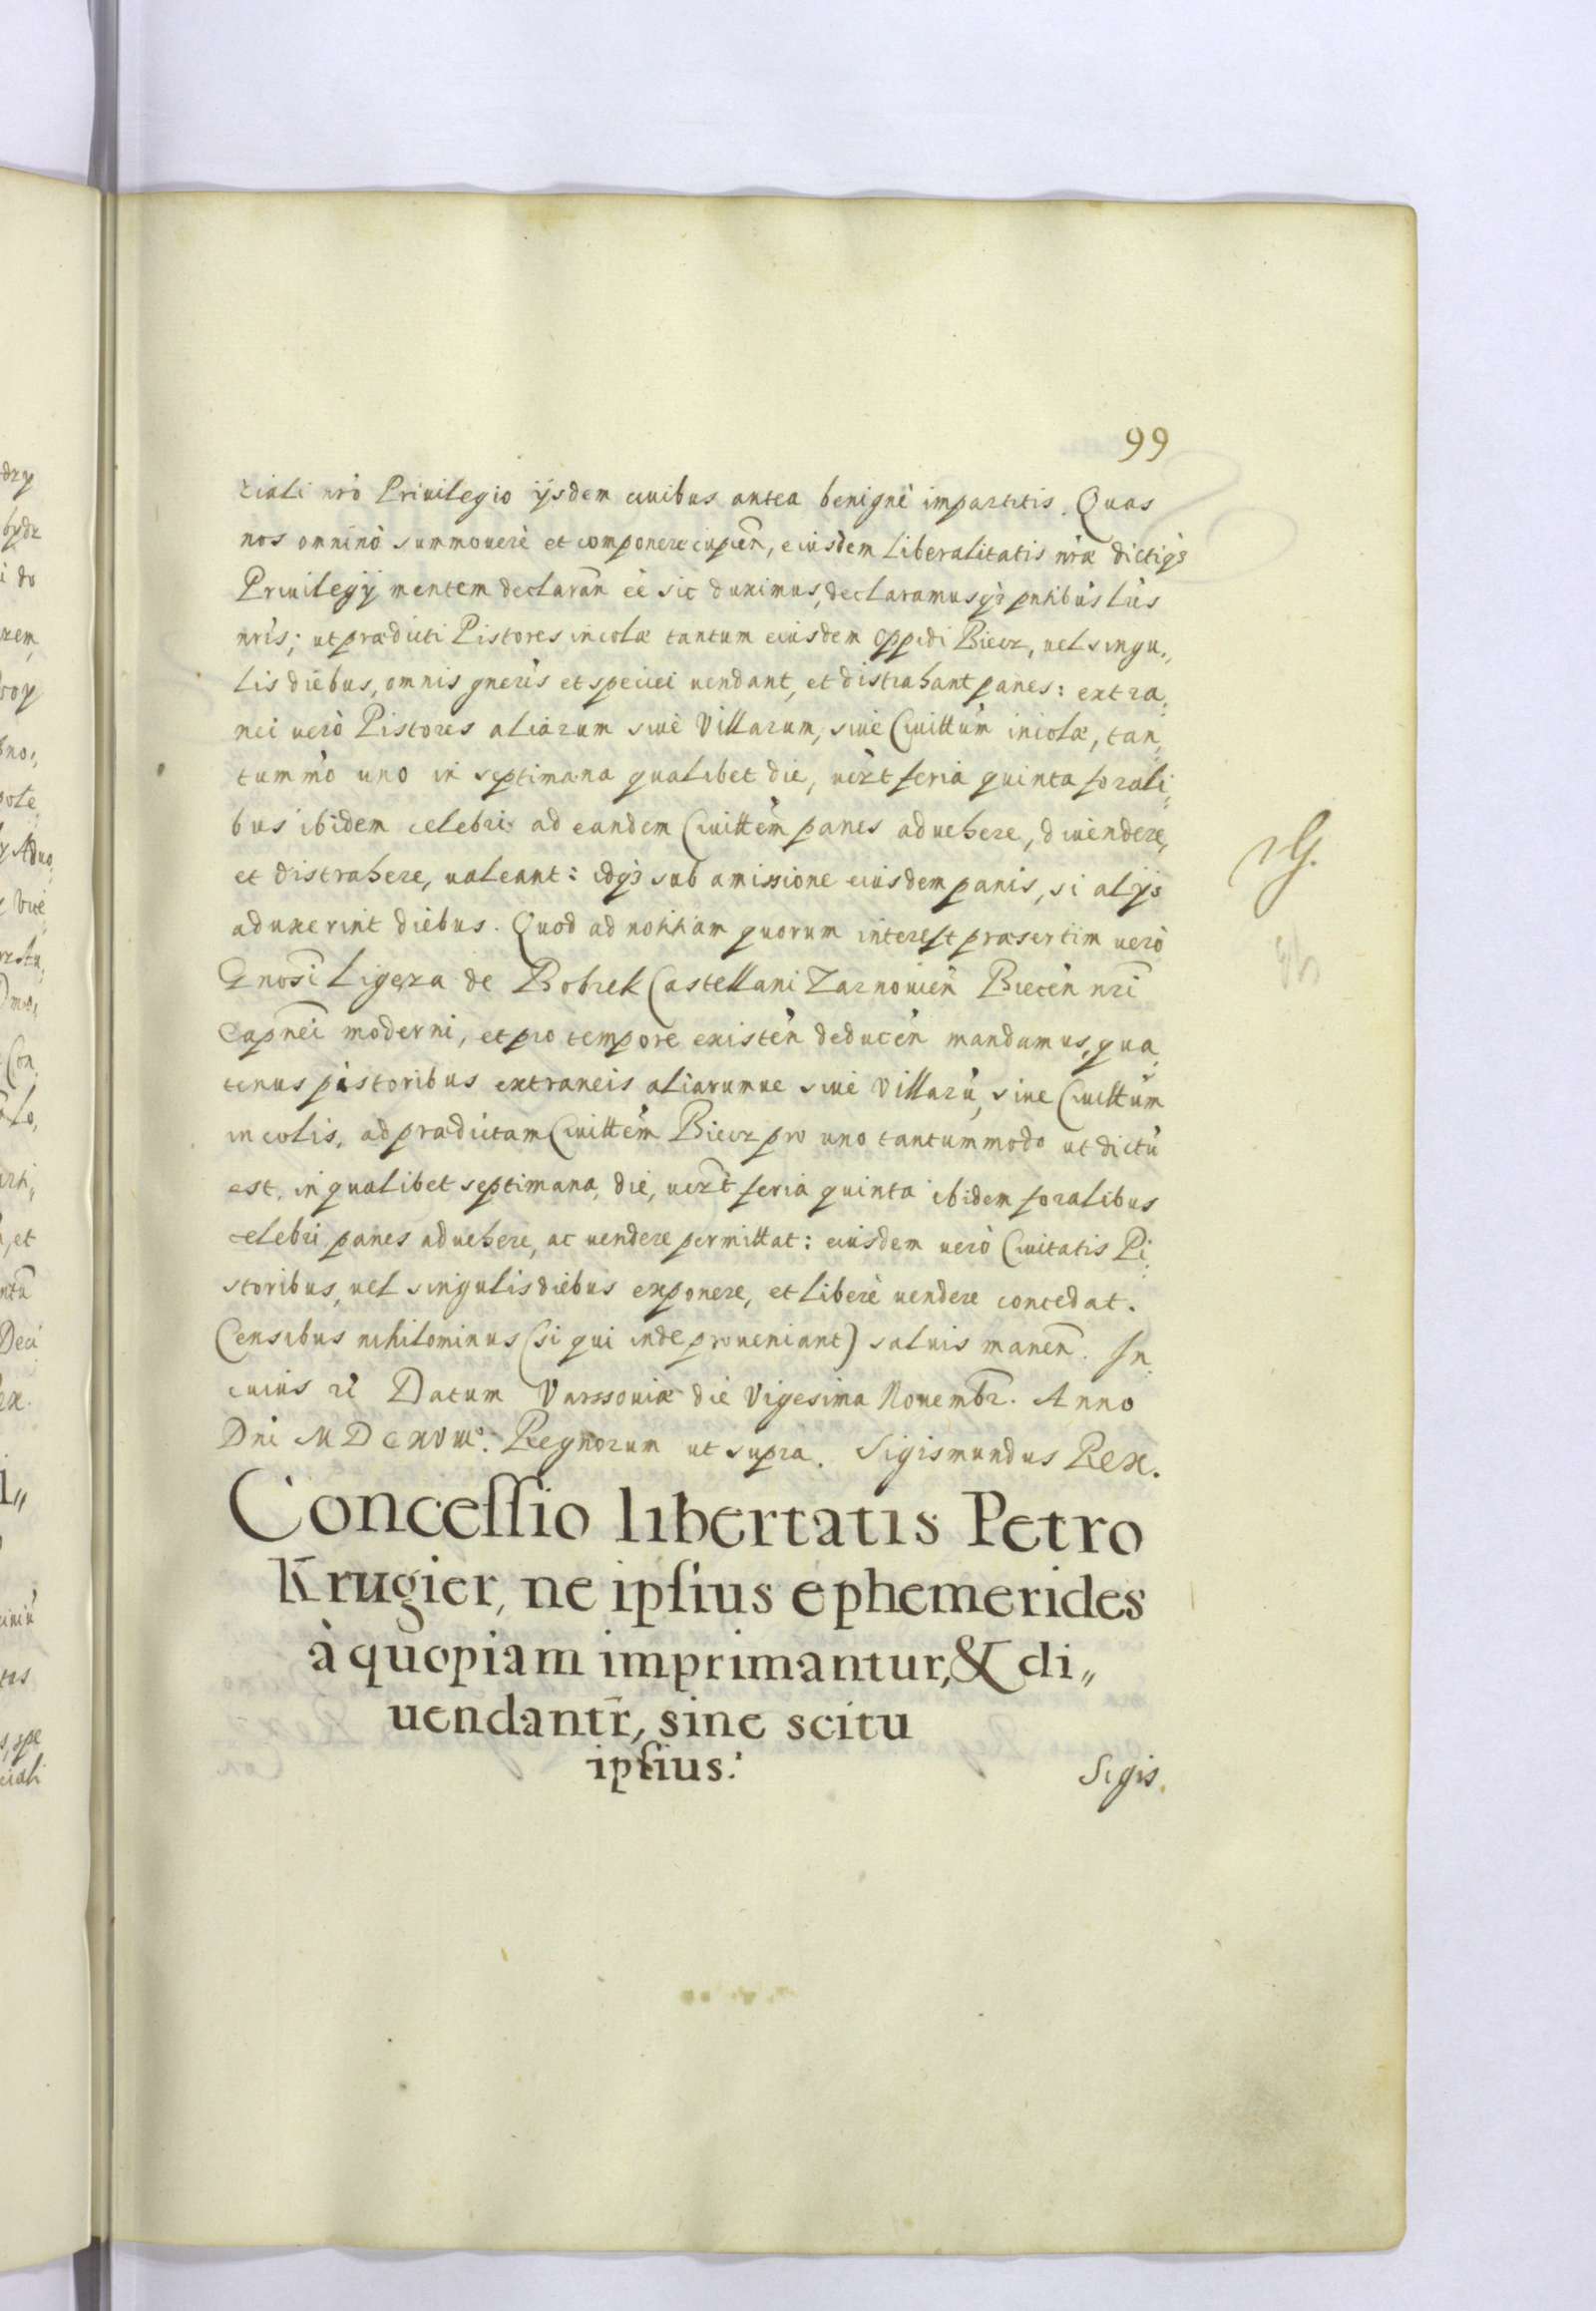 99
ciali nrò Priuilegio ijsdem ciuibus antea benignè impartitis. Quas
nos omninò summouere et componere cupien̄, eiusdem liberalitatis nr̄æ dictiq;
Priuilegij mentem declaran̄ eē sic duximus, declaramusq; pntibùs lr̀is
nrìs; ut prædicti Pistores incolæ tantum eiusdem oppidi Biecz, uel singu„
lis diebus, omnis gnerìs et speciei uendant, et distrahant panes: extra„
nei uerò Pistores aliarum siuè Villarum, siuè Ciuittùm incolæ, tan„
tummò uno in septimana qualibet die, uizt feria quinta forali„
bus ibidem celebri ad eandem Ciuittem̀ panes aduehere, diuendere,
et distrahere, ualeant: idq; sub amissione eiusdem panis, si alijs
aduxerint diebus. Quod ad notitiam quorum interest præsertim uerò
Gnosī Ligęza de Bobrek Castellani Zarnouien̄ Biecen̄ nrī
Capnēi moderni, et pro tempore existen̄ deducen̄ mandamus, qua„
tenus pistoribus extraneis aliarumue siuè Villarū, siue Ciuittùm
incolis, ad prædictam Ciuittem̀ Biecz pro uno tantummodo ut dictū
est, in qualibet septimana, die, uizt̄ feria quinta ibidem foralibus
celebri panes aduehere, ac uendere permittat: eiusdem uerò Ciuitatis Pi„
storibus, uel singulis diebus exponere, et liberè uendere concedat.
Censibus nihilominus (si qui inde proueniant) saluis manen̄. In
cuius rè Datum Varssouiæ die Vigesima Nouembr̄. Anno
Dni MDCXVIIIº. Regnorum ut supra. Sigismundus Rex.
G.
Conceſſio libertatis Petro
Krugier, ne ipſius ephemerides
à quopiam imprimantur, & di„
uendantr̄, sine scitu
ipſius.
Sigis.